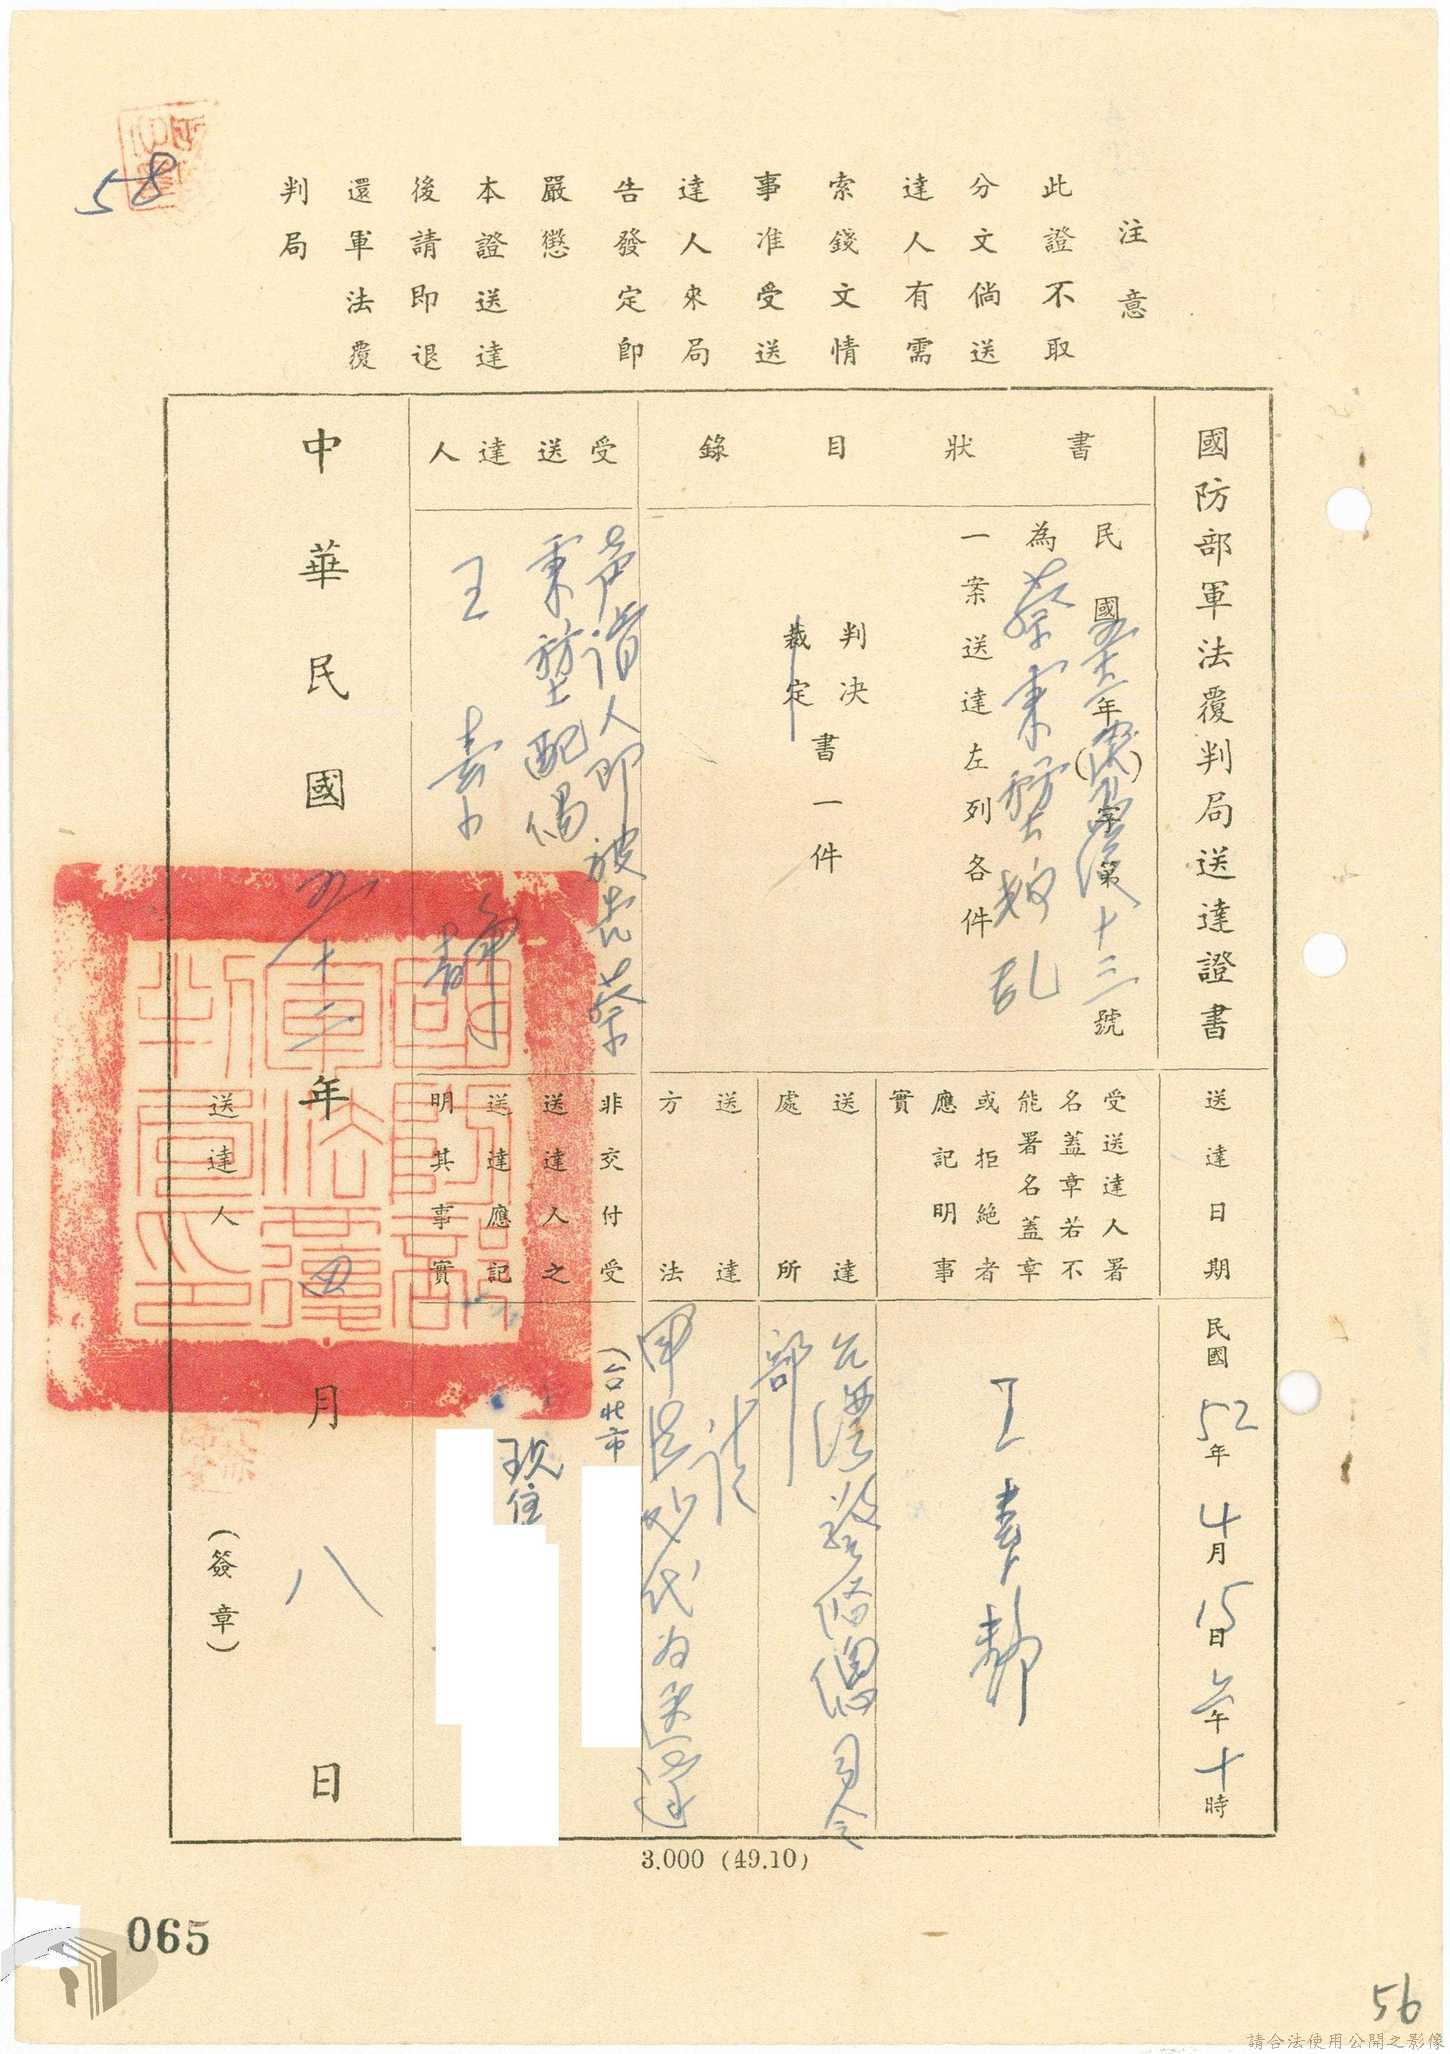 58
注意
此證不取
分文倘送
達人有需
索錢文情
事准受送
達人來局
告發定即
嚴懲
本證送達
後請即退
還軍法覆
判局
國防部軍法覆判局送達證書
書狀目錄
民國五十二年(  )字第十三號
為蔡秉堃叛乱
一案送達左列各件
判決
裁定
書一件
受送達人
声请人即被告蔡
秉堃配偶
王素靜
送達日期
民國52年4月15日上午十時
受送達人署
名蓋章若不
能署名蓋章
或拒絕者
應記明事
實
王素靜
送達處所
台灣警備總司令
部
送達方法
非交付受
送達人之
送達應記
明其事實
(台北市
現住
中華民國五十二年四月八日
送達人
(簽章)
國防部軍法覆判局印
3.000 (49.10)
065
56
請合法使用公開之影像